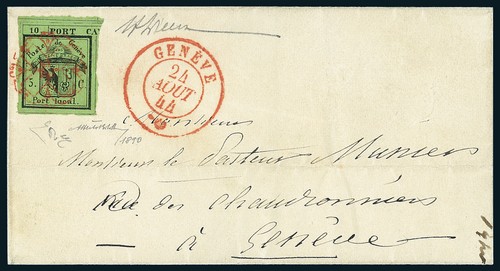 10 PORT CA
Poste de Genève
5 C.
Port local.
GENÈVE
24
AOUT
44
1890
Monsieur
Monsieur le Pasteur Munier
Rue des Chaudronniers
— à Genève —